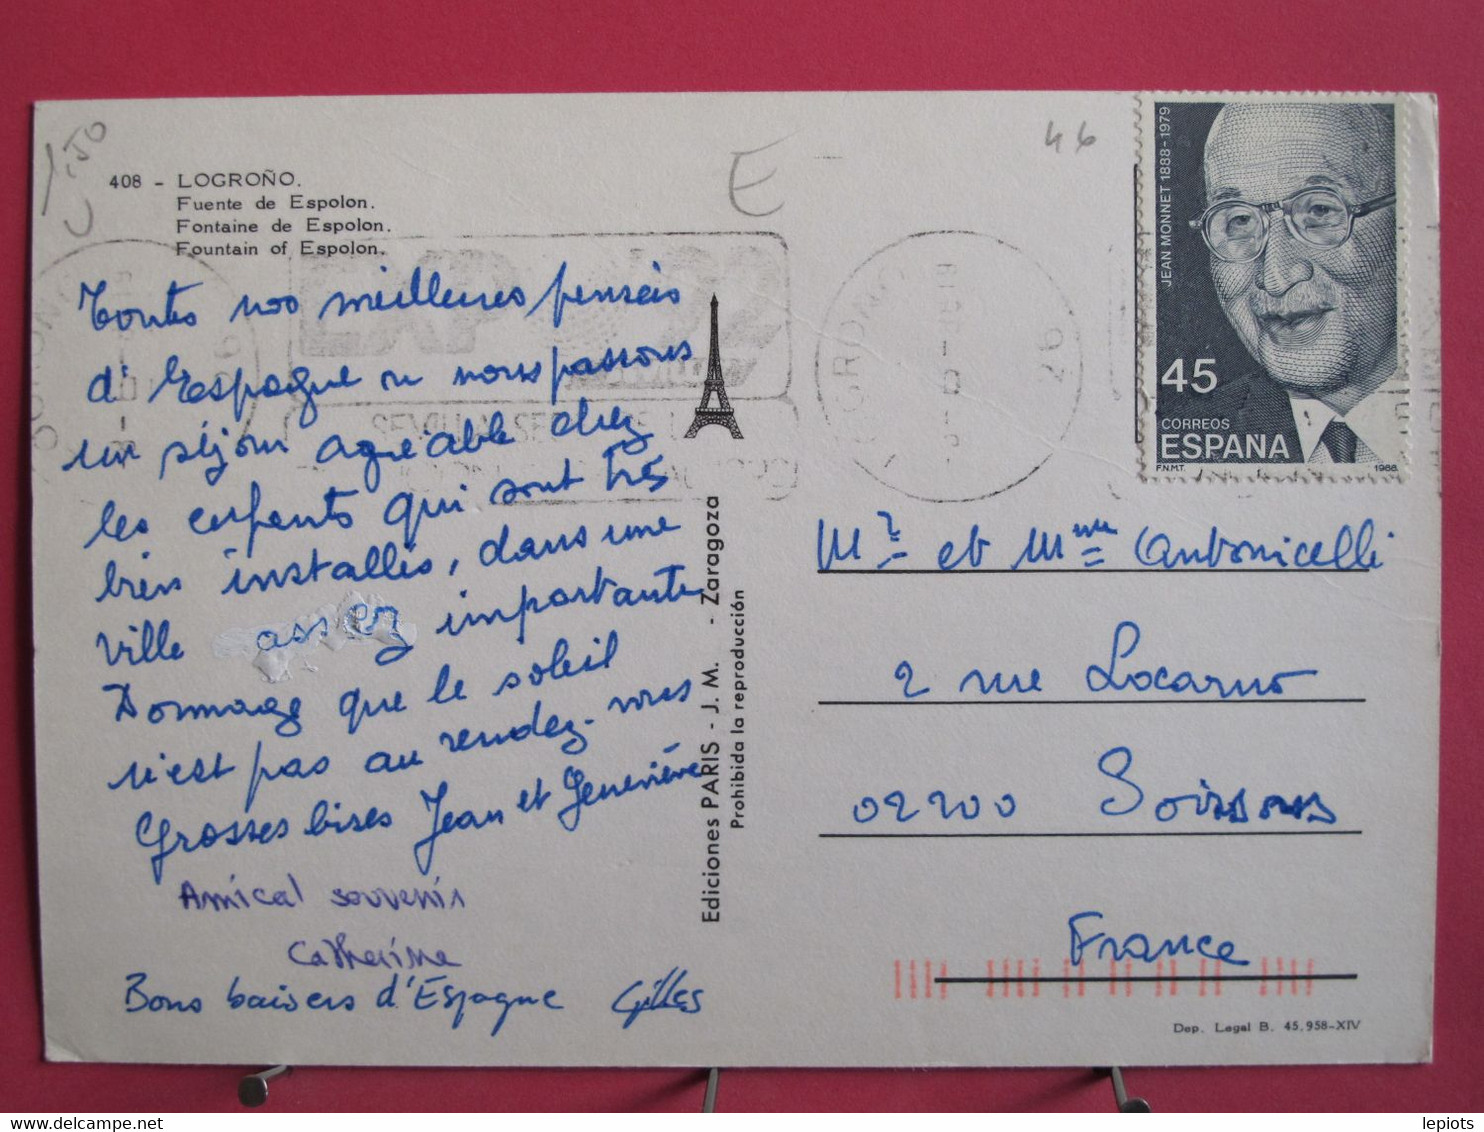 1.50
E
46
408 - LOGROÑO.
Fuente de Espolon.
Fontaine de Espolon.
Fountain of Espolon.
Toutes nos meilleures pensées
d'Espagne où nous passons
un séjour agréable chez
les enfants qui sont très
bien installés, dans une
ville assez importante
Dommage que le soleil
n'est pas au rendez-vous
Grosses bises Jean et Geneviève
Amical souvenir
Catherine
Bons baisers d'Espagne Gilles
Ediciones PARIS - J. M. - Zaragoza
Prohibida la reproducción
JEAN MONNET 1888-1979
45
CORREOS
ESPAÑA
F.N.M.T. 1988
LOGROÑO
26
Mr et Mme Antonicelli
2 rue Locarno
02200 Soissons
France
Dep. Legal B. 45,958-XIV
lepiots